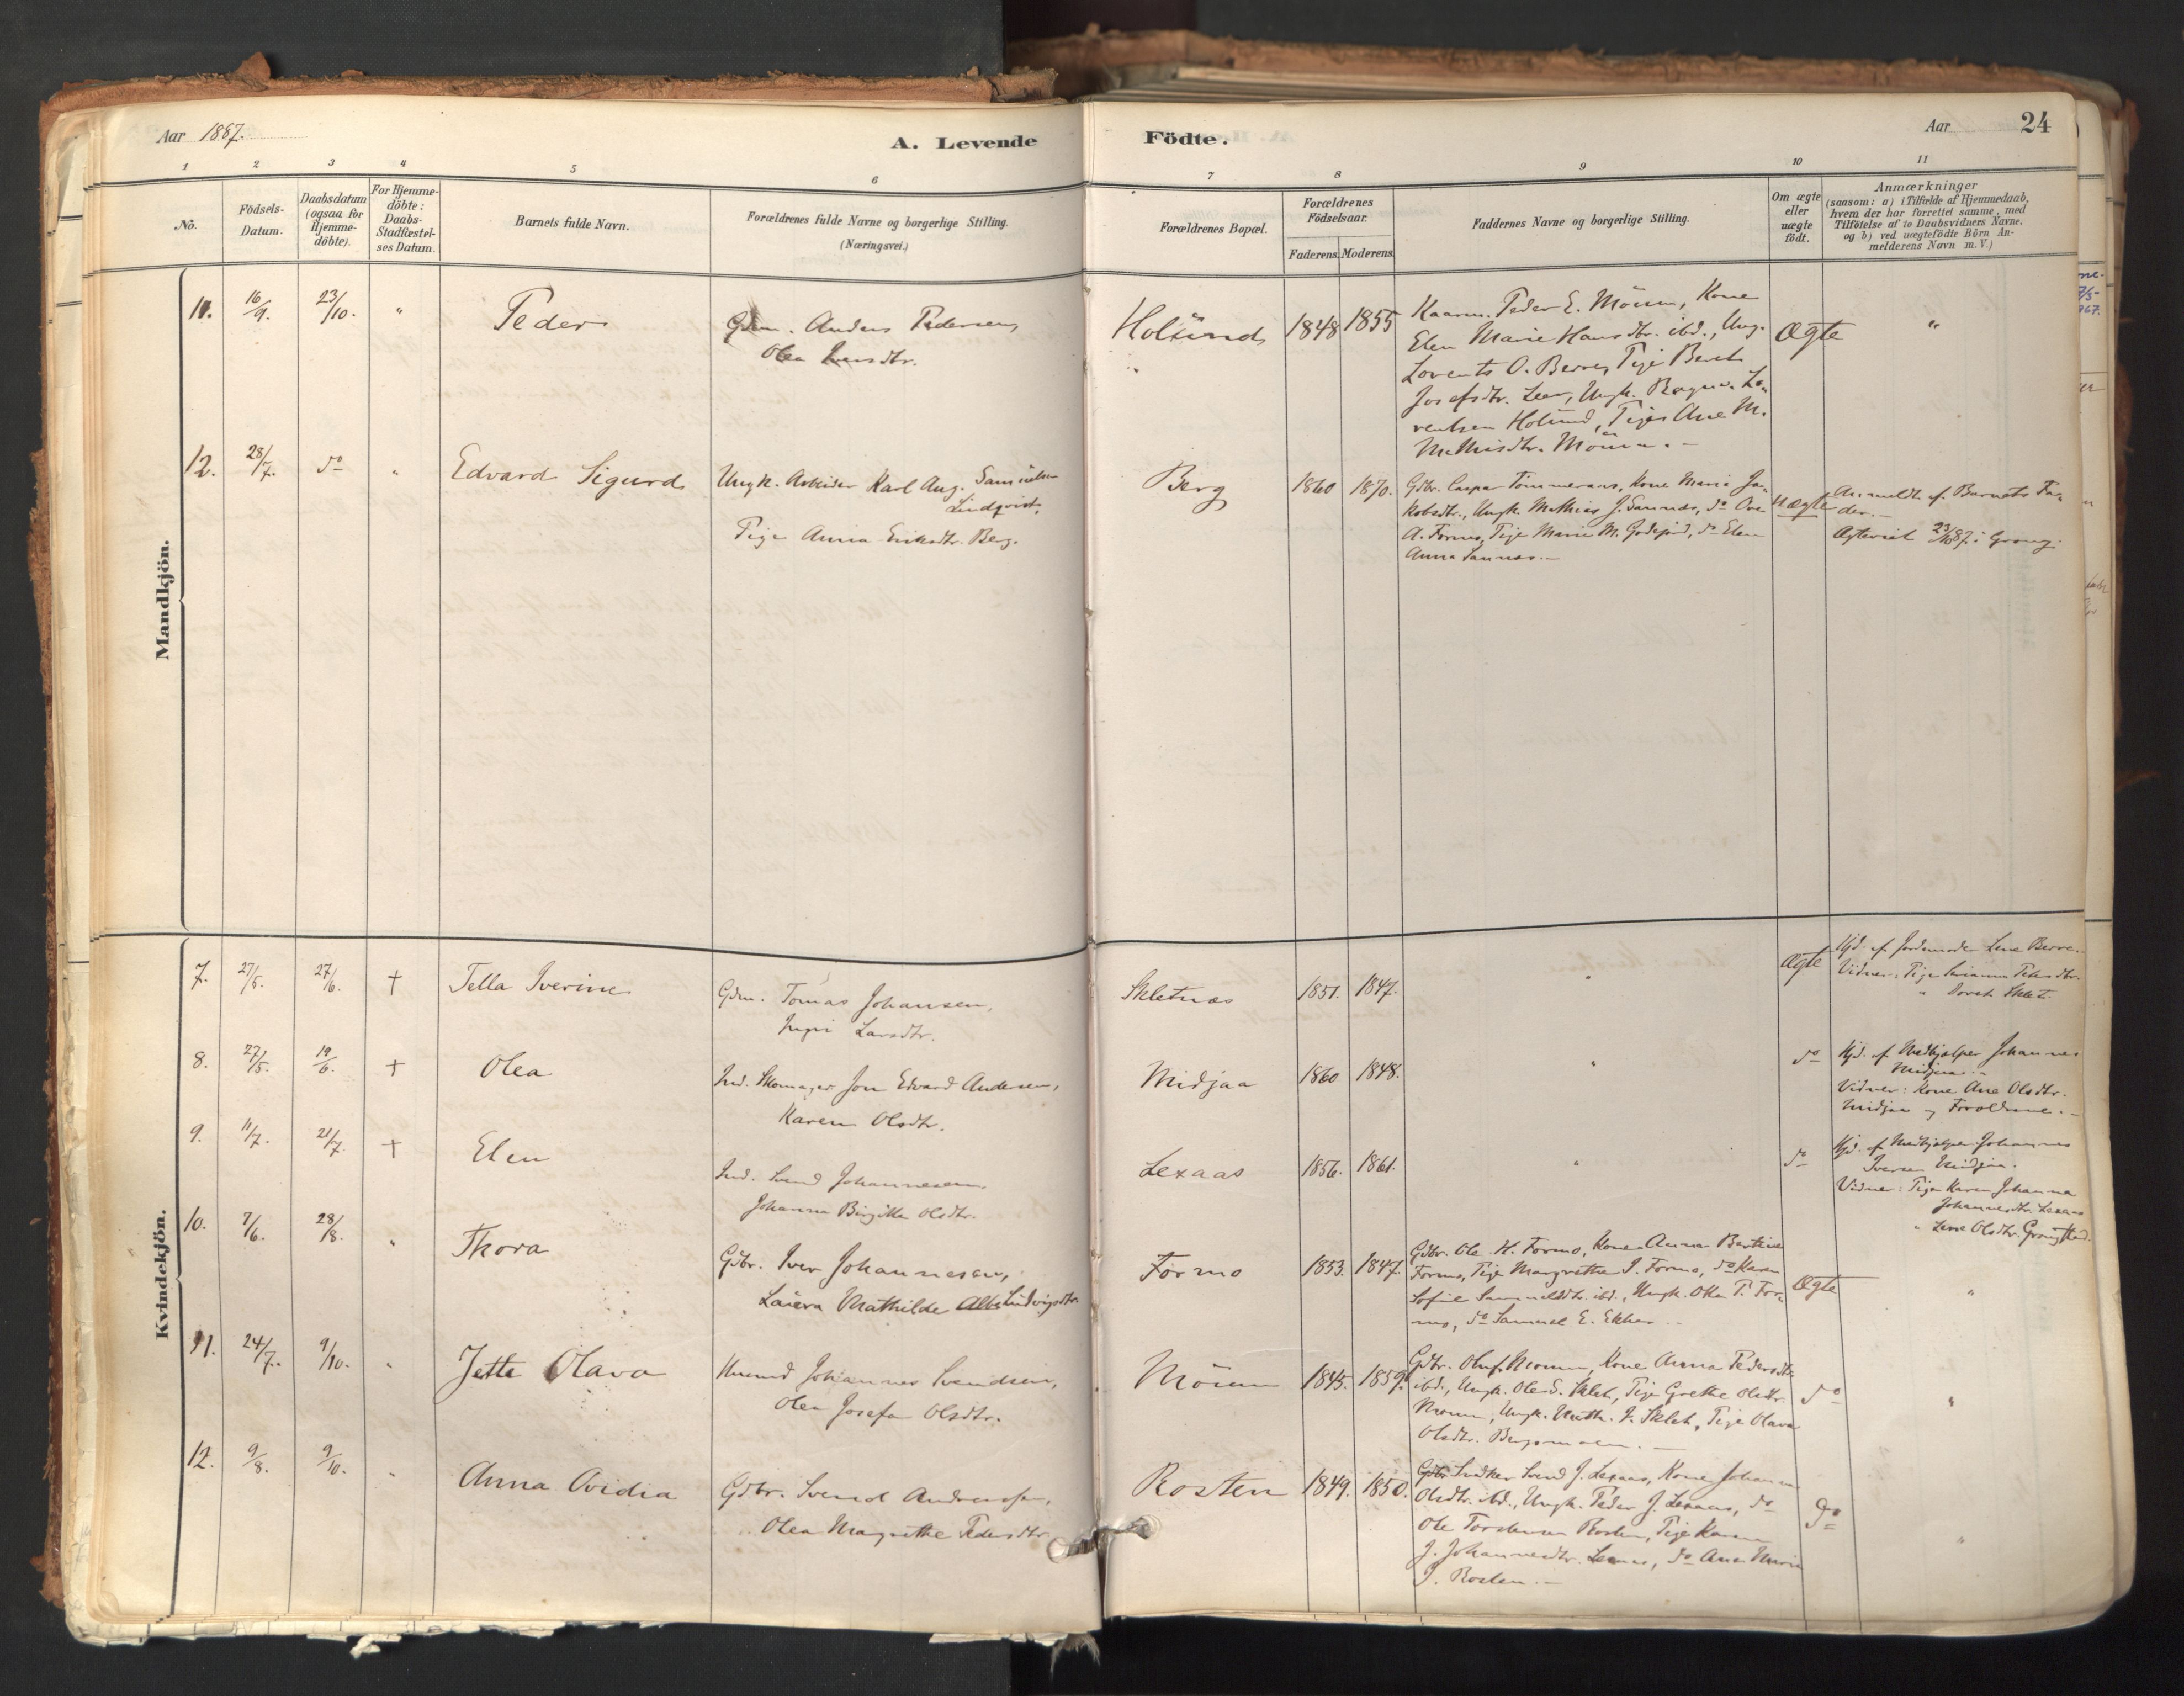 Aar 1887.
A. Levende
Födte.
Aar
24
1 2 3 4 5 6 7 8 9 10 11
No.
Födsels-
Datum.
Daabsdatum
(ogsaa for
Hjemme-
döbte).
For Hjemme-
döbte:
Daabs-
Stadfæstel-
ses Datum.
Barnets fulde Navn.
Forældrenes fulde Navne og borgerlige Stilling.
(Næringsvei.)
Forældrenes Bopæl.
Forældrenes
Födselsaar.
Faderens. Moderens.
Faddernes Navne og borgerlige Stilling.
Om ægte
eller
uægte
født.
Anmærkninger
(saasom: a) i Tilfælde af Hjemmedaab,
hvem der har forrettet samme, med
Tilföielse af to Daabsvidners Navne.
og b) ved uægtefödte Börn An-
melderens Navn m. V.)
Mandkjön.
11. 16/9. 23/10. "
Peder
Gdm. Anders Pedersen,
Olea Iversdtr.
Holund
1848 1855
Kaarm. Peder E. Möum, Kone
Elen Marie Hansdtr. ibd., Ung.
Lorents O. Berre, Pige Beret
Josefsdtr. Leer, Ungk. Ragnv. Lo-
rentsen Holund, Pige Ane M.
Mathisdtr. Möum. -
Ægte
"
12. 28/7. do "
Edvard Sigurd
Ungk. Arbeider Karl Aug. Samuelsen
Lindqvist,
Pige Anna Eriksdtr. Berg.
Berg
1860 1870.
Gdbr. Caspar Tömmeraas, Kone Marie Ja-
kobsdtr., Ungk. Mathias J. Sannæs, do Ove
A. Formo, Pige Marie M. Godejord, do Elen
Anna Sannæs. -
Uægte
Anmeldt af Barnets Fa-
der. -
Ægteviet 23/10 87 i Grong.
Kvindekjön.
7. 27/5. 27/6. †
Tella Iverine
Gdm. Tomas Johansen,
Ingri Larsdtr.
Skletnæs
1851. 1847.
"
Ægte
Hjd. af Jordemoder Lene Berre.
Vidner: Pige Peders dtr.
" Dorth. Sklet.
8. 27/5. 19/6. †
Olea
Ind. Skomager Jon Edvard Andersen,
Karen Olsdtr.
Midjaa
1860 1848.
"
do
Hjd. af Medhjælper Johannes
Midjaa.
Vidner: Kone Ane Olsdtr.
Midjaa og Forældrene. -
9. 11/7. 21/7. †
Elen
Ind. Svend Johannesen,
Johanna Birgitte Olsdtr.
Lexaas
1856. 1861.
"
do
Hjd. af Medhjælper Johannes
Iversen Midjaa.
Vidner: Pige Karen Johanna
Johannesdtr. Lexaas
" Lene Olsdtr. Grongstad.
10. 7/6. 28/8. "
Thora
Gdbr. Iver Johannesen,
Laura Mathilde Ludvigsdtr.
Formo
1853. 1847.
Gdbr. Ole H. Formo, Kone Anna Bertine
Formo, Pige Margrethe I. Formo, do Karen
Sofie Samueldtr. ibd., Ungk. Otto P. For-
mo, do Samuel E. Ekker. -
Ægte
"
11. 24/7. 9/10. "
Jette Olava
Husmd Johannes Svendsen,
Olea Josefa Olsdtr.
Möum
1845. 1859.
Gdbr. Oluf Moum, Kone Anna Pedersdtr.
ibd., Ungk. Ole S. Sklet, Pige Grethe Olsdtr.
Moum, Ungk. Math. J. Sklet, Pige Olava
Olsdtr. Bergsmoen. -
do
"
12. 9/8. 9/10. "
Anna Ovidia
Gdbr. Svend Andreassen,
Olea Magrethe Pedersdtr.
Rosten
1849. 1850.
Svend J. Lexaas, Kone Johanna
Olsdtr. ibd., Ungk. Peder J. Lexaas, do
Ole Torstensen Rosten, Pige Karen
J. Johannesdtr. Lexaas, do Ane Marie
J. Rosten. -
do
"